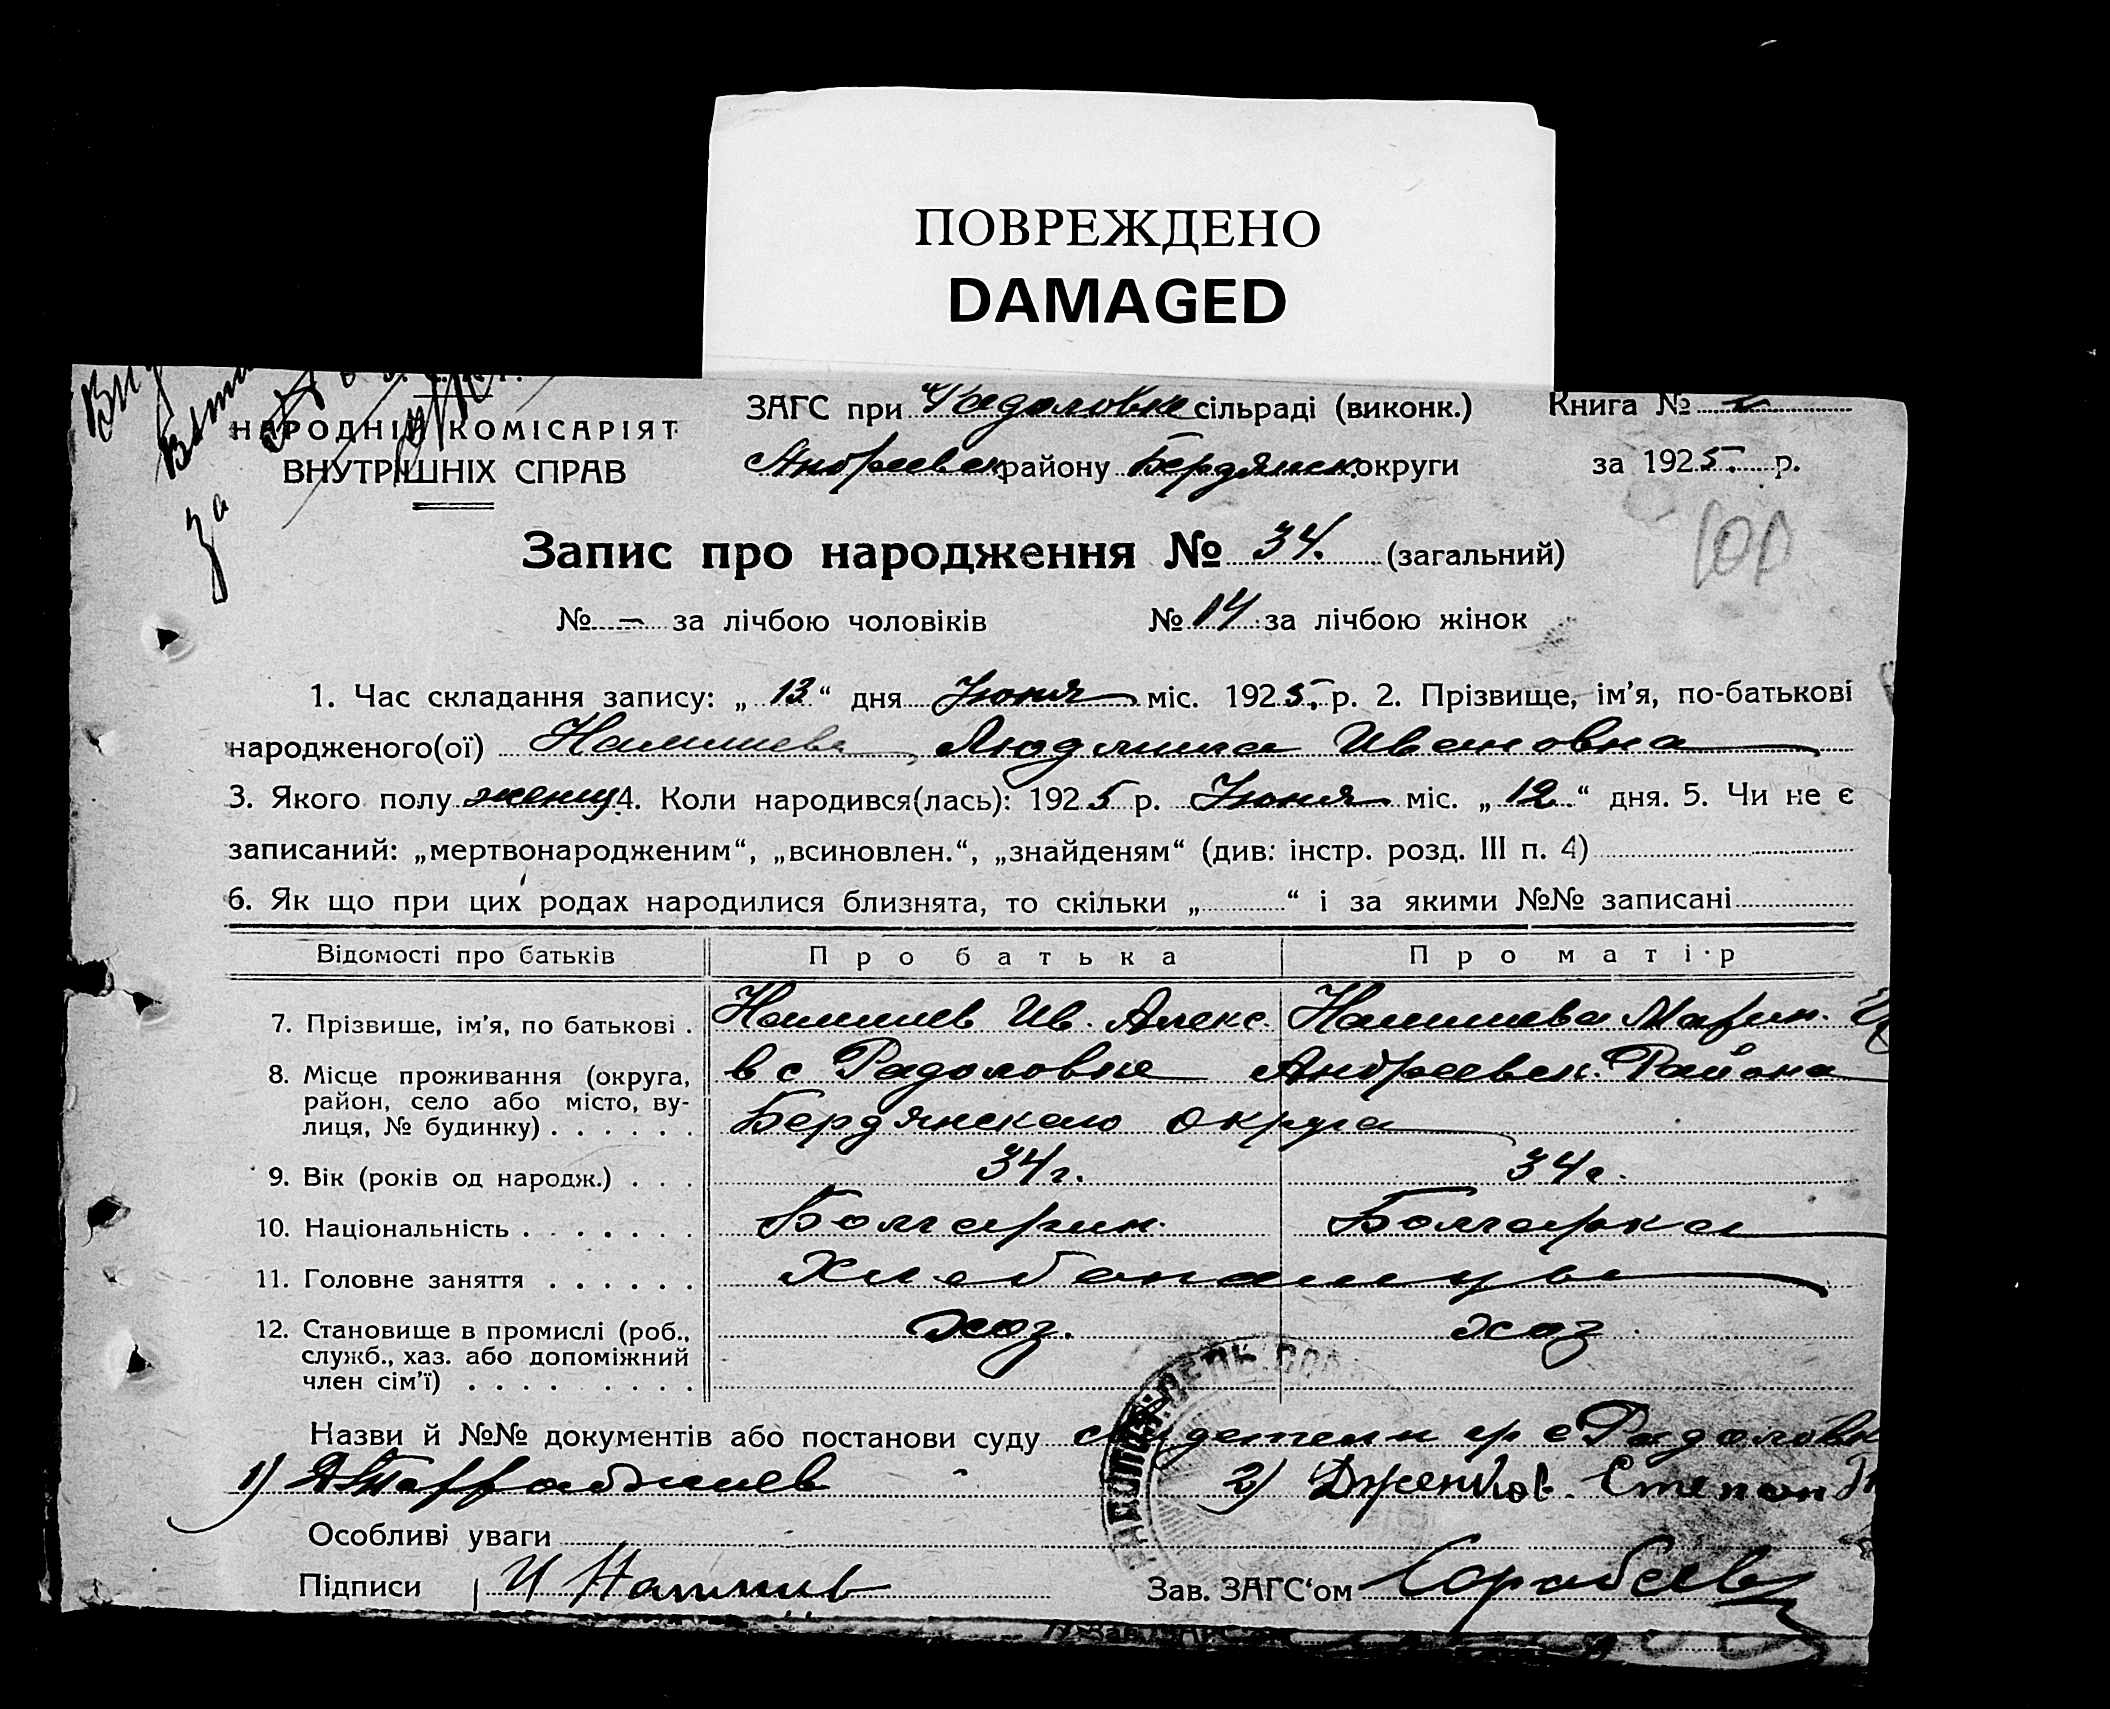 ПОВРЕЖДЕНО
DAMAGED
НАРОДНІЙ КОМІСАРІЯТ
ВНУТРІШНІХ СПРАВ
за
ЗАГС при Радоловке сільраді (виконк.)
Андреевск району Бердянск. округи
Книга №
за 1925. р.
100
Запис про народження № 34. (загальний)
№ – за лічбою чоловіків № 14 за лічбою жінок
1. Час складання запису: „13“ дня Июня міс. 1925. р. 2. Прізвище, ім'я, по-батькові
народженого(ої) Людмила Ивановна
3. Якого полу женщ. 4. Коли народився(лась): 1925 р. Июня міс. „12“ дня. 5. Чи не є
записаний: „мертвонародженим“, „всиновлен.“, „знайденям“ (див: інстр. розд. III п. 4)
6. Як що при цих родах народилися близнята, то скільки „ “ і за якими №№ записані
Відомості про батьків Про батька Про матір
7. Прізвище, ім'я, по батькові . Ив. Алекс.
8. Місце проживання (округа, в с Радоловке Андреевск. Района
район, село або місто, ву-
лиця, № будинку) . . . . . . Бердянскаго округа
9. Вік (років од народж.) . . . 34 г. 34 г.
10. Національність . . . . . . . Болгарин. Болгарка
11. Головне заняття . . . . . . Хлебопашцы
12. Становище в промислі (роб., хоз. хоз
служб., хаз. або допоміжний
член сім'ї) . . . . . . . .
Назви й №№ документів або постанови суду свидетели гр с Радоловк
1) 2) Степан
Особливі уваги
Підписи И
Зав. ЗАГС‘ом